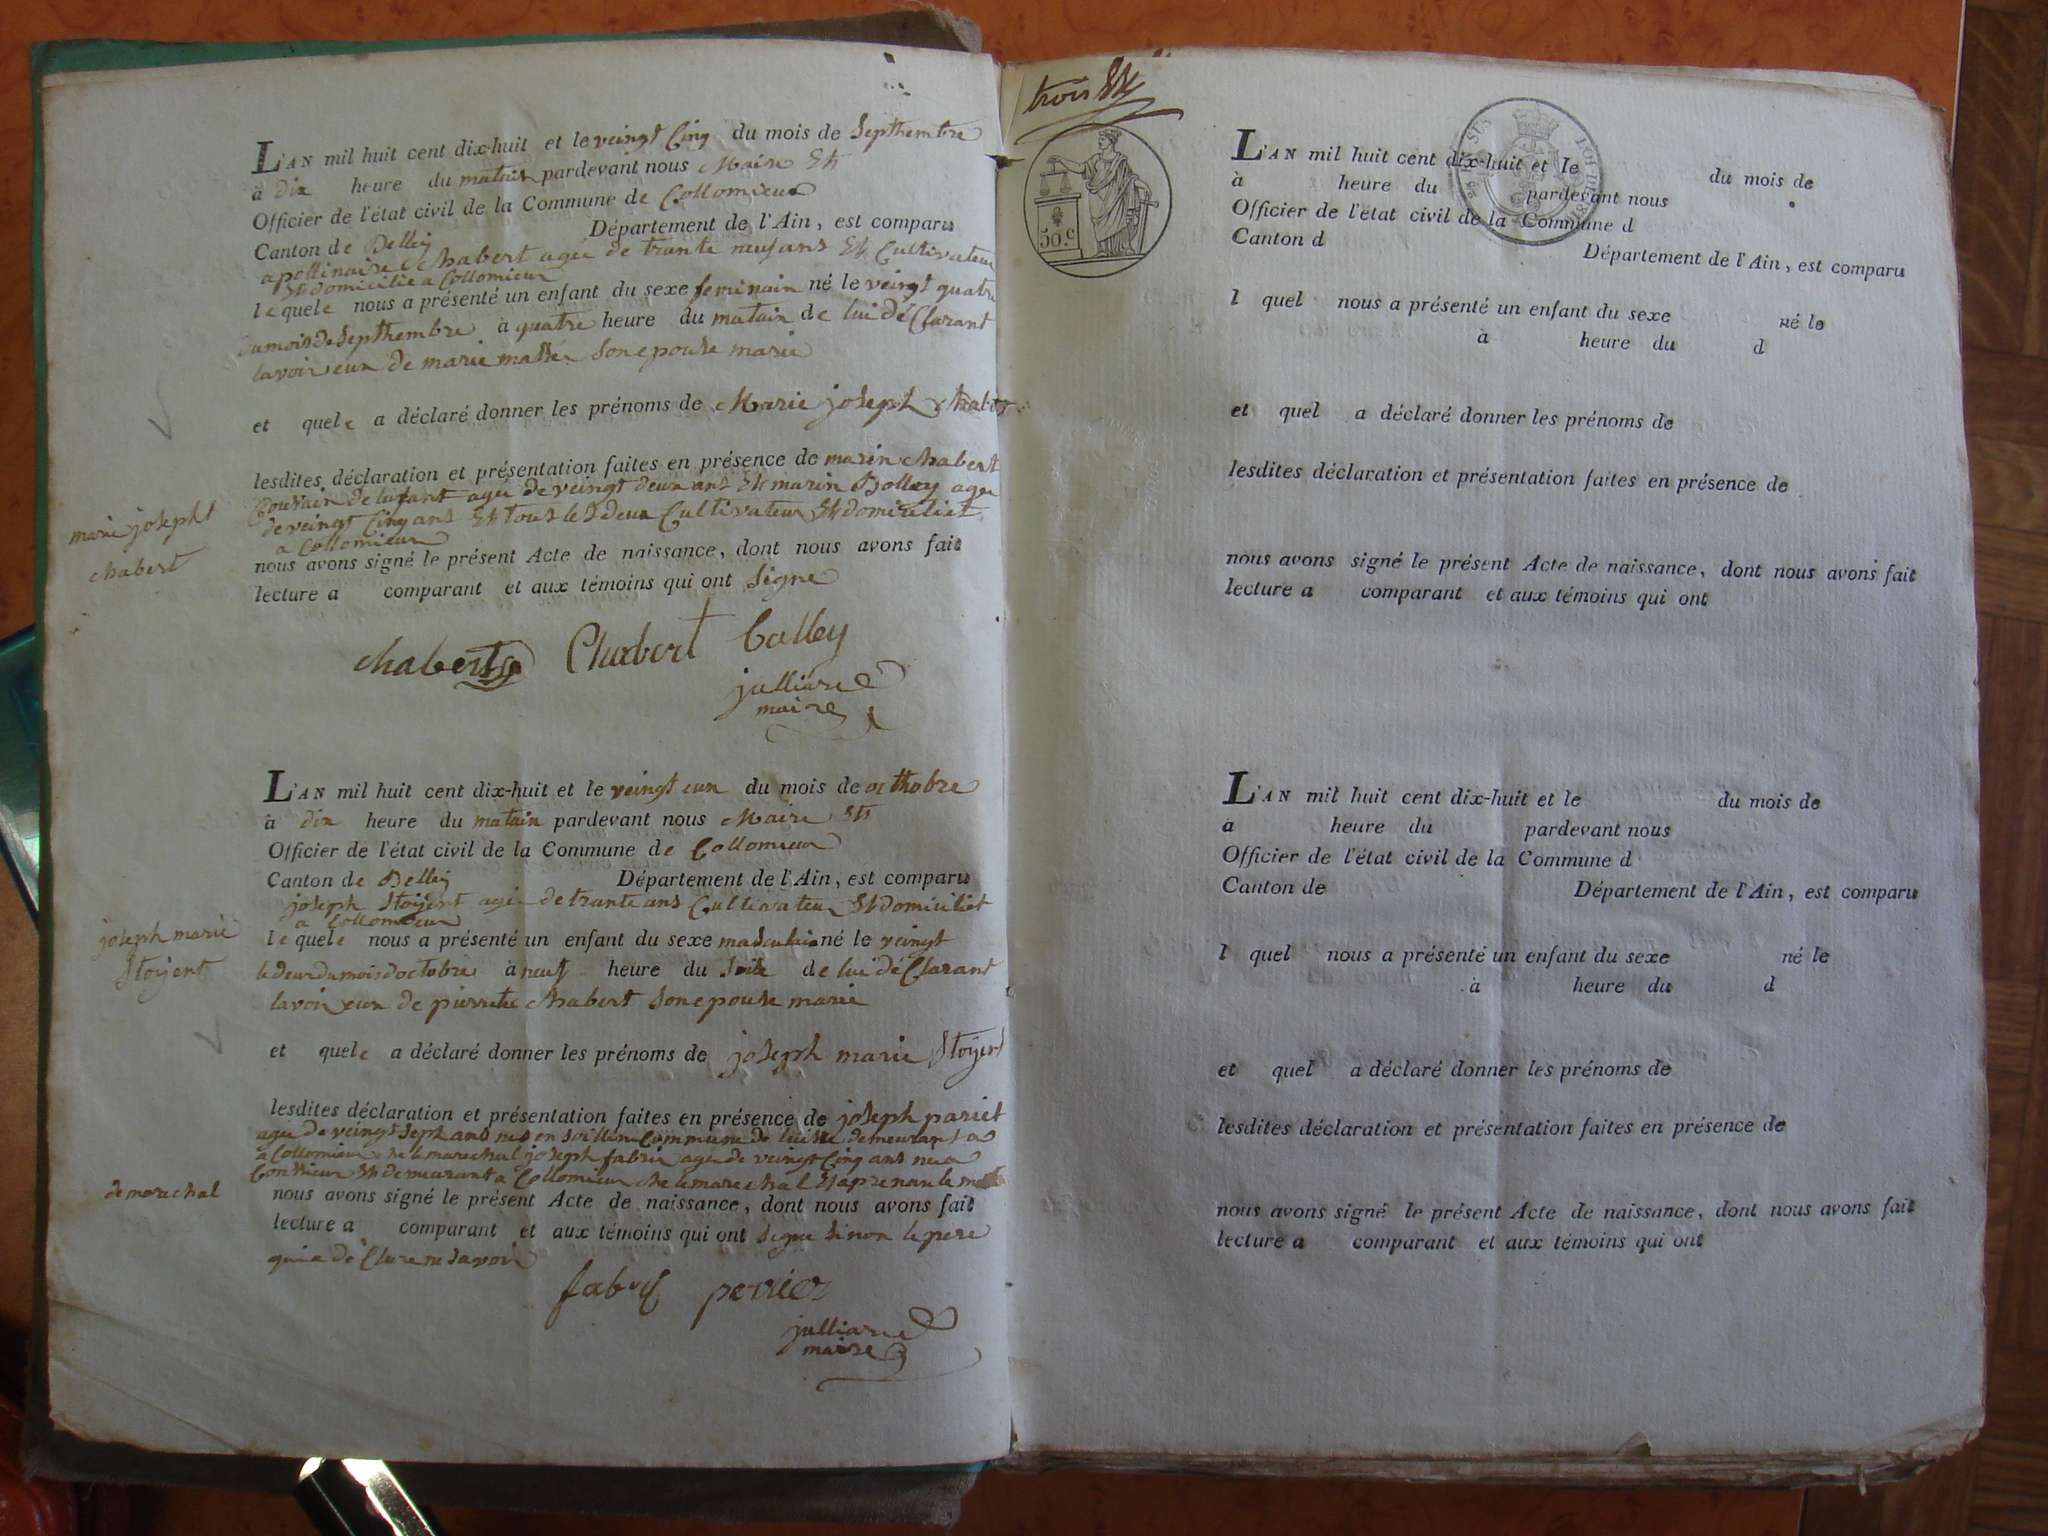 L'AN mil huit cent dix-huit et le veingt Cinq du mois de Septhembre
à Dix heure du matain pardevant nous Maire Et
Officier de l'état civil de la Commune de Collomieux
Canton de Belley Département de l'Ain, est comparu
apollinaire chabert agée de trante neuf ans Et Cultivateur
Et domicilié a Collomieux
lequele nous a présenté un enfant du sexe feminain né le veingt quatre
du mois de Septhembre à quatre heure du matain de lui déClarant
lavoir eux de marie son epouse marie
et quele a déclaré donner les prénoms de Marie joseph chabert
lesdites déclaration et présentation faites en présence de marin chabert
agée de veingt deux ans Et marin Bolley agee
de veingt Cinq ans Et tous les deux Cultivateur Et domiciliet
a Collomieux
marie joseph
chabert
nous avons signé le présent Acte de naissance, dont nous avons fait
lecture a comparant et aux témoins qui ont signe
chabert Chabert Bolley
julliand
maire
L'AN mil huit cent dix-huit et le veingt eux du mois de octhobre
à dix heure du matain pardevant nous Maire Et
Officier de l'état civil de la Commune de Collomieux
Canton de Belley Département de l'Ain, est comparu
joseph Stoyent agée de trante ans Cultivateur Et domiciliet
a Collomieux
joseph marie
Stoyent
lequele nous a présenté un enfant du sexe masculain né le veingt
le deux du mois d'octobre à neuf heure du Soir de lui déClarant
lavoir eux de pierrette chabert son epouse marie
et quele a déclaré donner les prénoms de joseph marie Stoyent
lesdites déclaration et présentation faites en présence de joseph pariet
agée de veingt Seph ans Commune de demeurant a
a Collomieux che le marechal joseph fabri agée de veingt Cinq ans
Conthieux Et demeurant a Collomieux che le marechal
de marechal
nous avons signé le présent Acte de naissance, dont nous avons fait
lecture a comparant et aux témoins qui ont signe sinon le pere
qui a déClare ne savoir
fabri perrier
julliand
maire
trois
50.c
L'AN mil huit cent dix-huit et le du mois de
à heure du pardevant nous
Officier de l'état civil de la Commune d
Canton d Département de l'Ain, est comparu
l quel nous a présenté un enfant du sexe né le
à heure du d
et quel a déclaré donner les prénoms de
lesdites déclaration et présentation faites en présence de
nous avons signé le présent Acte de naissance, dont nous avons fait
lecture a comparant et aux témoins qui ont
L'AN mil huit cent dix-huit et le du mois de
a heure du pardevant nous
Officier de l'état civil de la Commune d
Canton de Département de l'Ain, est comparu
l quel nous a présenté un enfant du sexe né le
à heure du d
et quel a déclaré donner les prénoms de
lesdites déclaration et présentation faites en présence de
nous avons signé le présent Acte de naissance, dont nous avons fait
lecture a comparant et aux témoins qui ont